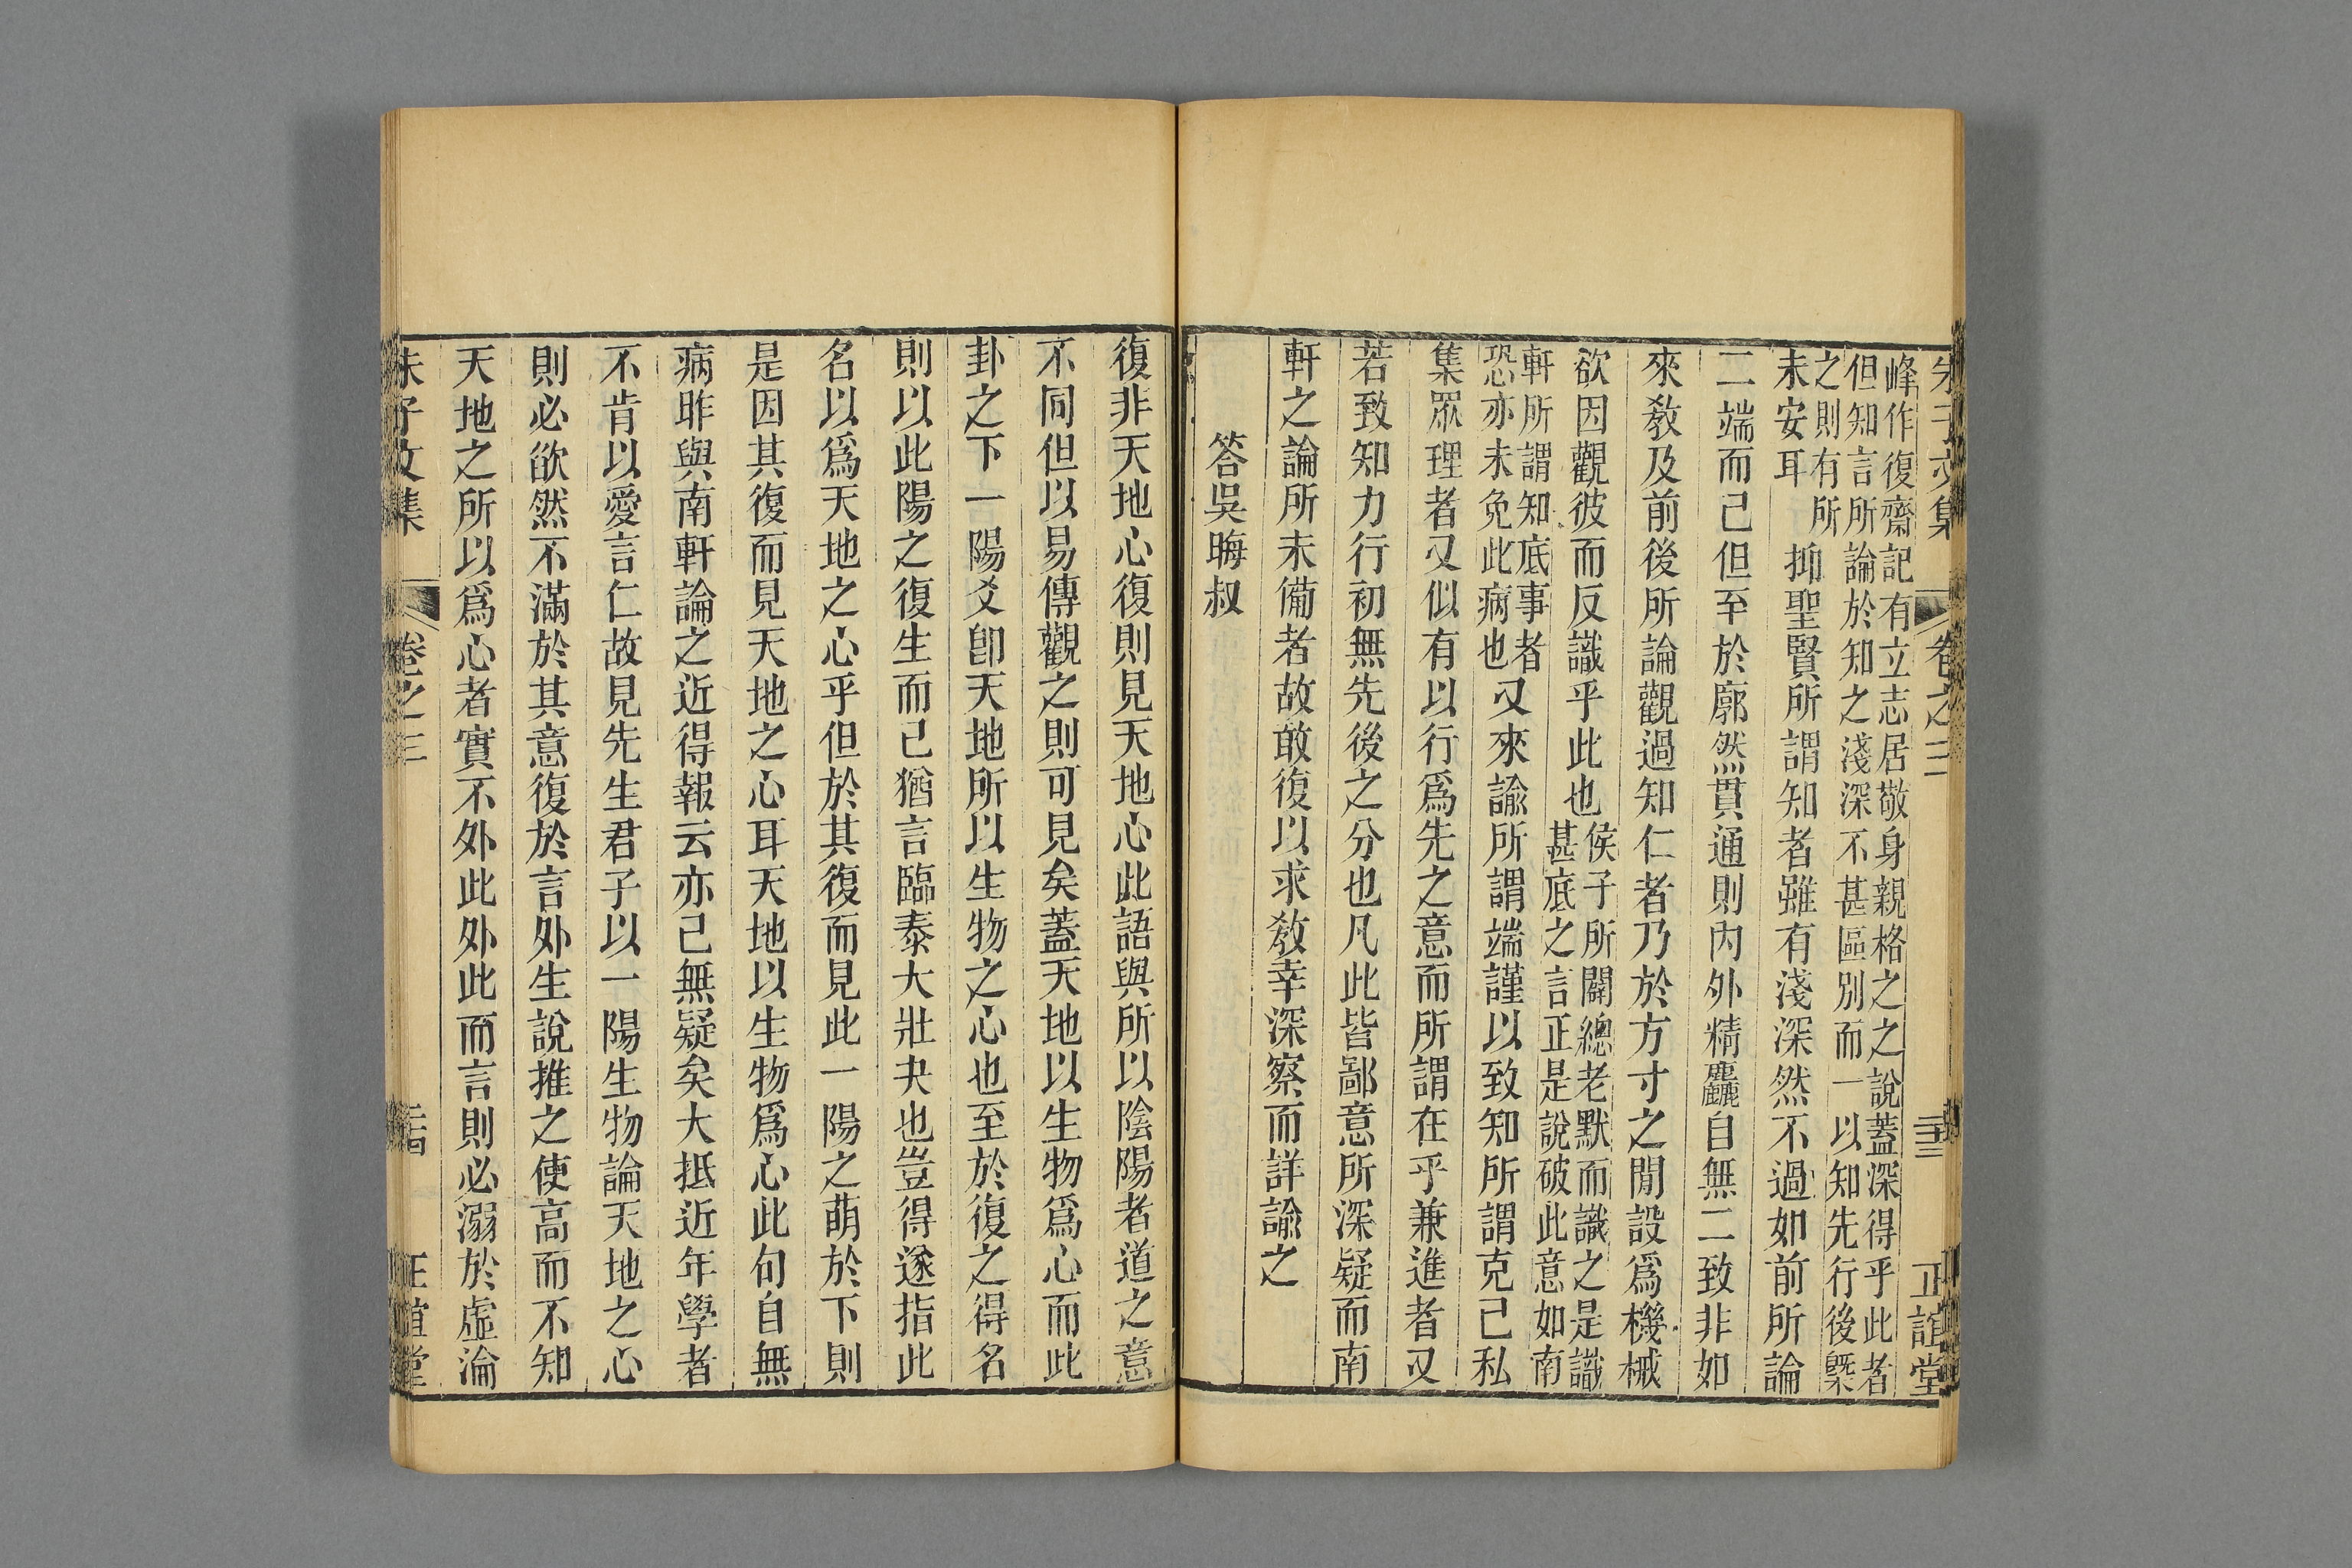 朱子文集 卷之三 二十三 正誼堂
峰作復齋記有立志居敬身親格之之說蓋深得乎此者
但知言所論於知之淺深不甚區別而一以知先行後槩
之則有所
未安耳
抑聖賢所謂知者雖有淺深然不過如前所論
二端而已但至於廓然貫通則內外精麤自無二致非如
來敎及前後所論觀過知仁者乃於方寸之閒設爲機械
欲因觀彼而反識乎此也
侯子所闢總老默而識之是識
甚底之言正是說破此意如南
軒所謂知底事者
恐亦未免此病也
又來諭所謂端謹以致知所謂克己私
集眾理者又似有以行爲先之意而所謂在乎兼進者又
若致知力行初無先後之分也凡此皆鄙意所深疑而南
軒之論所未備者故敢復以求敎幸深察而詳諭之
答吳晦叔
復非天地心復則見天地心此語與所以陰陽者道之意
不同但以易傳觀之則可見矣蓋天地以生物爲心而此
卦之下一陽爻卽天地所以生物之心也至於復之得名
則以此陽之復生而已猶言臨泰大壯夬也豈得遂指此
名以爲天地之心乎但於其復而見此一陽之萌於下則
是因其復而見天地之心耳天地以生物爲心此句自無
病昨與南軒論之近得報云亦已無疑矣大抵近年學者
不肯以愛言仁故見先生君子以一陽生物論天地之心
則必欿然不滿於其意復於言外生說推之使高而不知
天地之所以爲心者實不外此外此而言則必溺於虛淪
朱子文集 卷之三 二十四 正誼堂